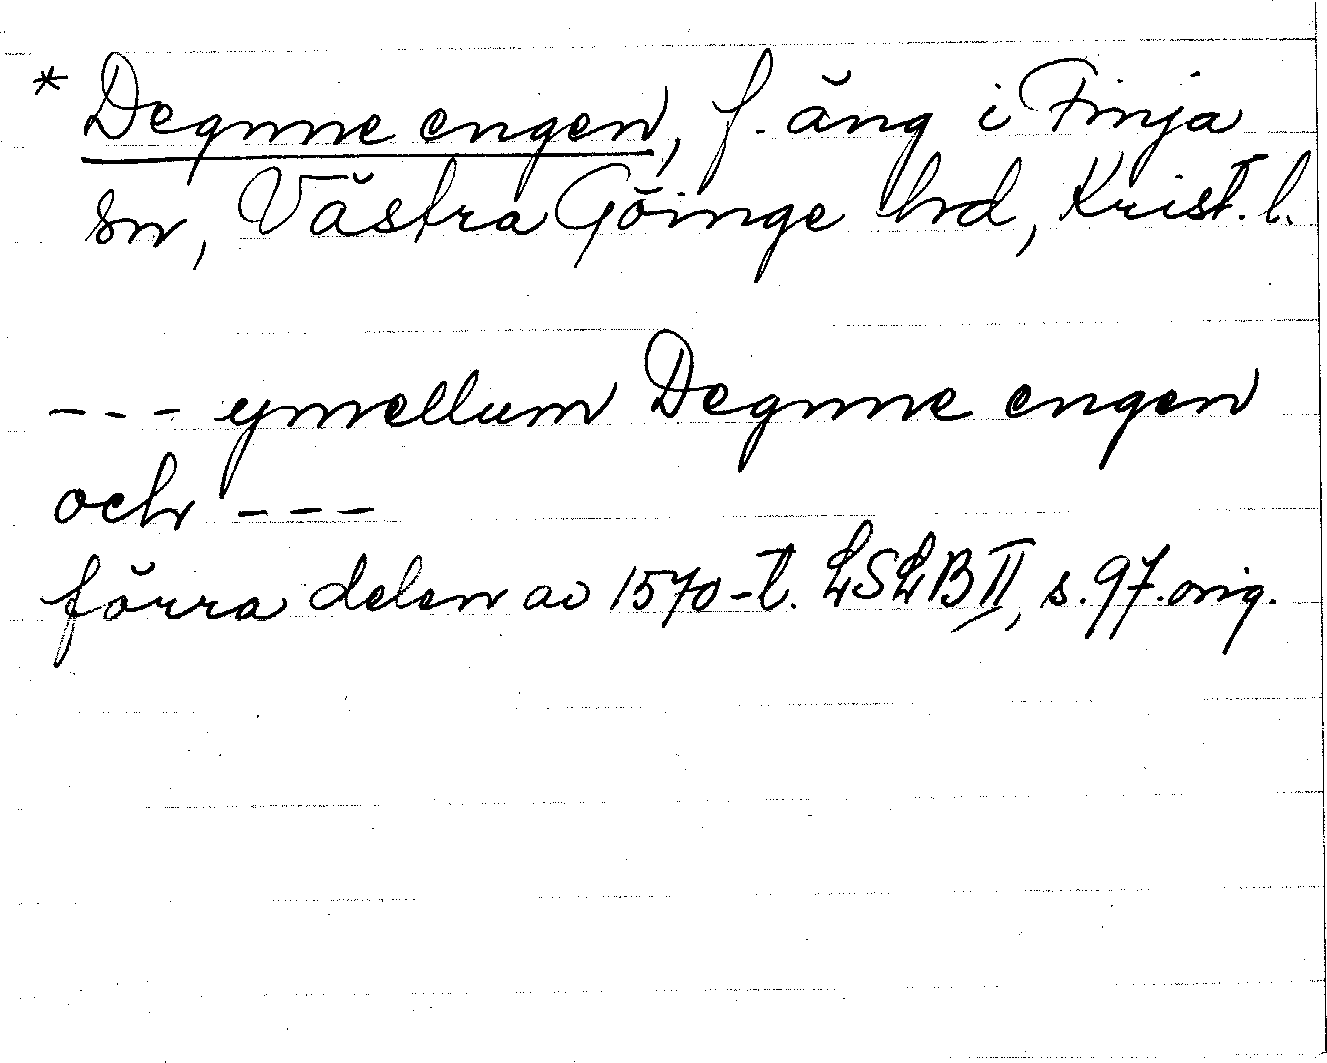 * Degnne engen, f. äng i Finja
sn, Västra Göinge hd, Krist. l.
--- ymellum Degnne engen
och ---
förra delen av 1570-t. LSLB II, s. 97. orig.